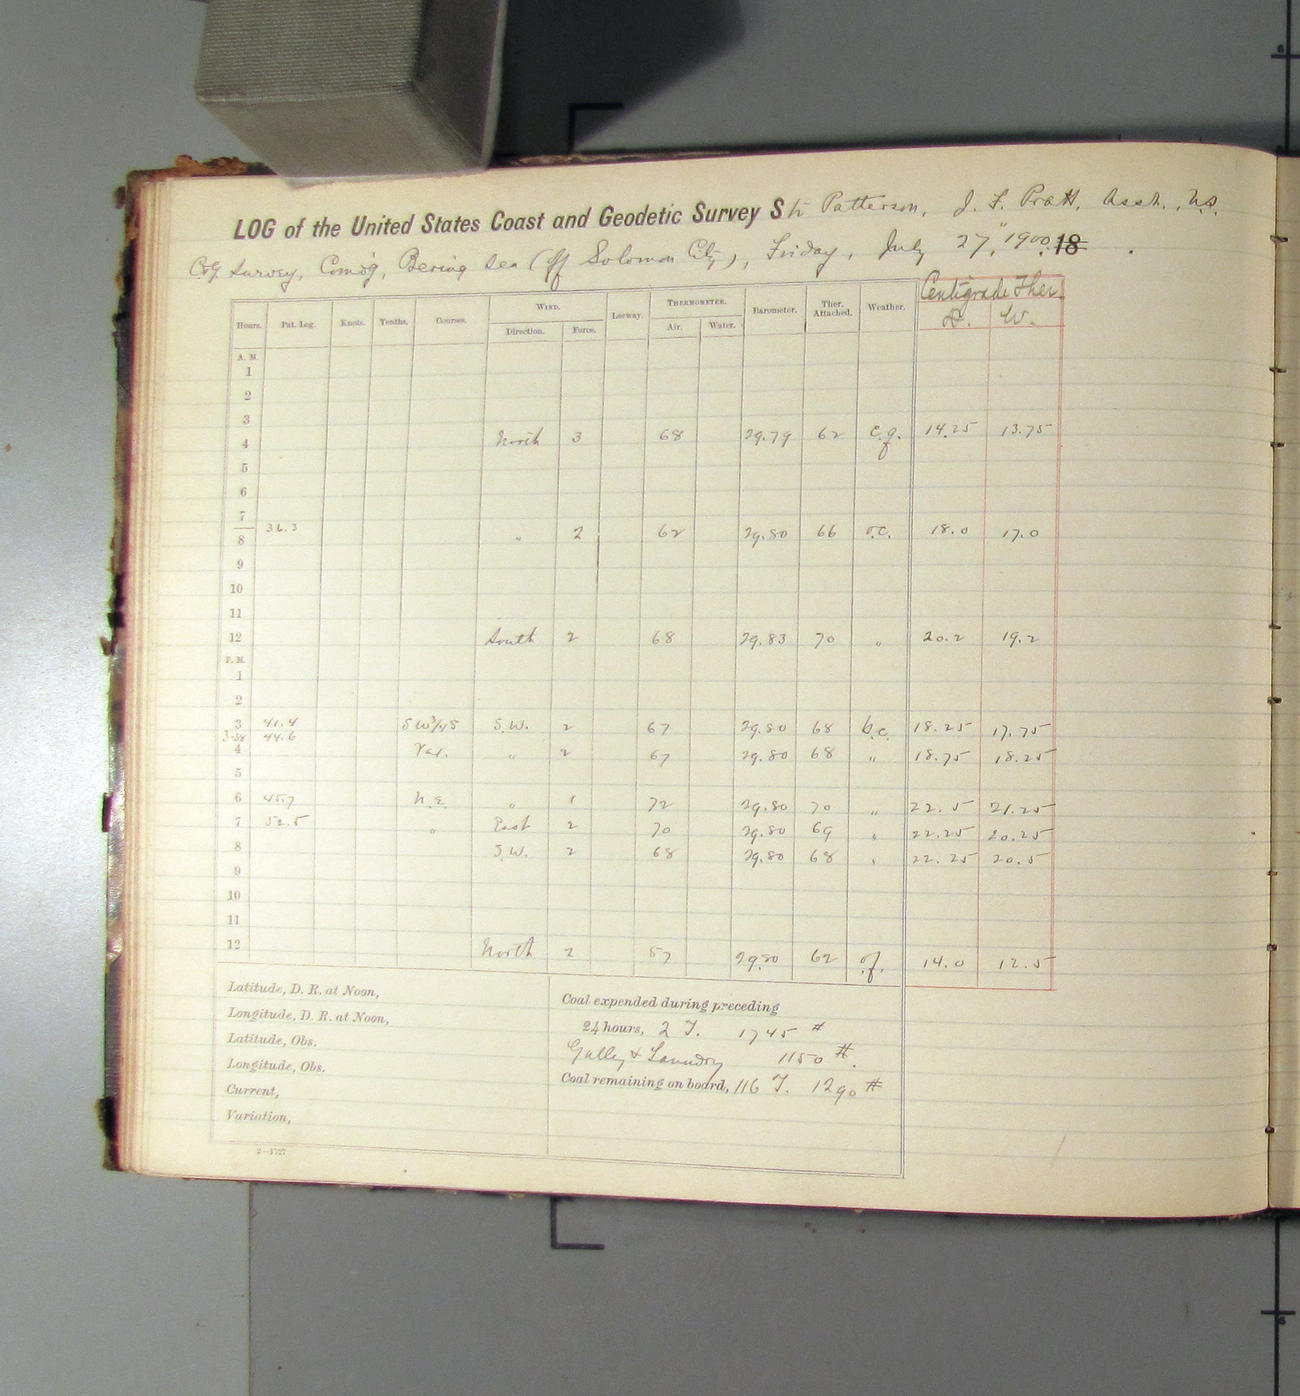 LOG of the United States Coast and Geodetic Survey Str Patterson, J. F. Pratt, Asst., U.S.
C&G Survey, Comd'g, Bering Sea (off Solomon City), Friday, July 27, 1900. 18
Centigrade Ther.
Hours. Pat. Log. Knots. Tenths. Courses. WIND. Leeway. THERMOMETER. Barometer. Ther. Attached. Weather. D. W.
Direction. Force. Air. Water.
A. M.
1
2
3
4 North 3 68 29.79 62 c.g. 14.25 13.75
5
6
7
8 36.3 " 2 62 29.80 66 o.c. 18.0 17.0
9
10
11
12 South 2 68 29.83 70 " 20.2 19.2
P. M.
1
2
3 41.4 SW 3/4 S S.W. 2 67 29.80 68 b.c. 18.25 17.75
3-38 44.6
4 Var. " 2 67 29.80 68 " 18.75 18.25
5
6 45.7 N.E. " 1 72 29.80 70 " 22.5 21.25
7 52.5 " East 2 70 29.80 69 " 22.25 20.25
8 S.W. 2 68 29.80 68 " 22.25 20.5
9
10
11
12 North 2 57 29.80 62 o.f. 14.0 12.5
Latitude, D. R. at Noon,
Longitude, D. R. at Noon,
Latitude, Obs.
Longitude, Obs.
Current,
Variation,
Coal expended during preceding
24 hours, 2 T. 1745 #
Galley & Laundry 1150 #.
Coal remaining on board, 116 T. 1290 #
2—1727